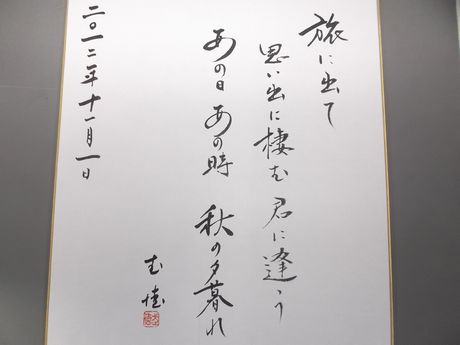 旅に出て
思い出に棲む 君に逢う
あの日 あの時 秋の夕暮れ
二〇一二年十一月一日